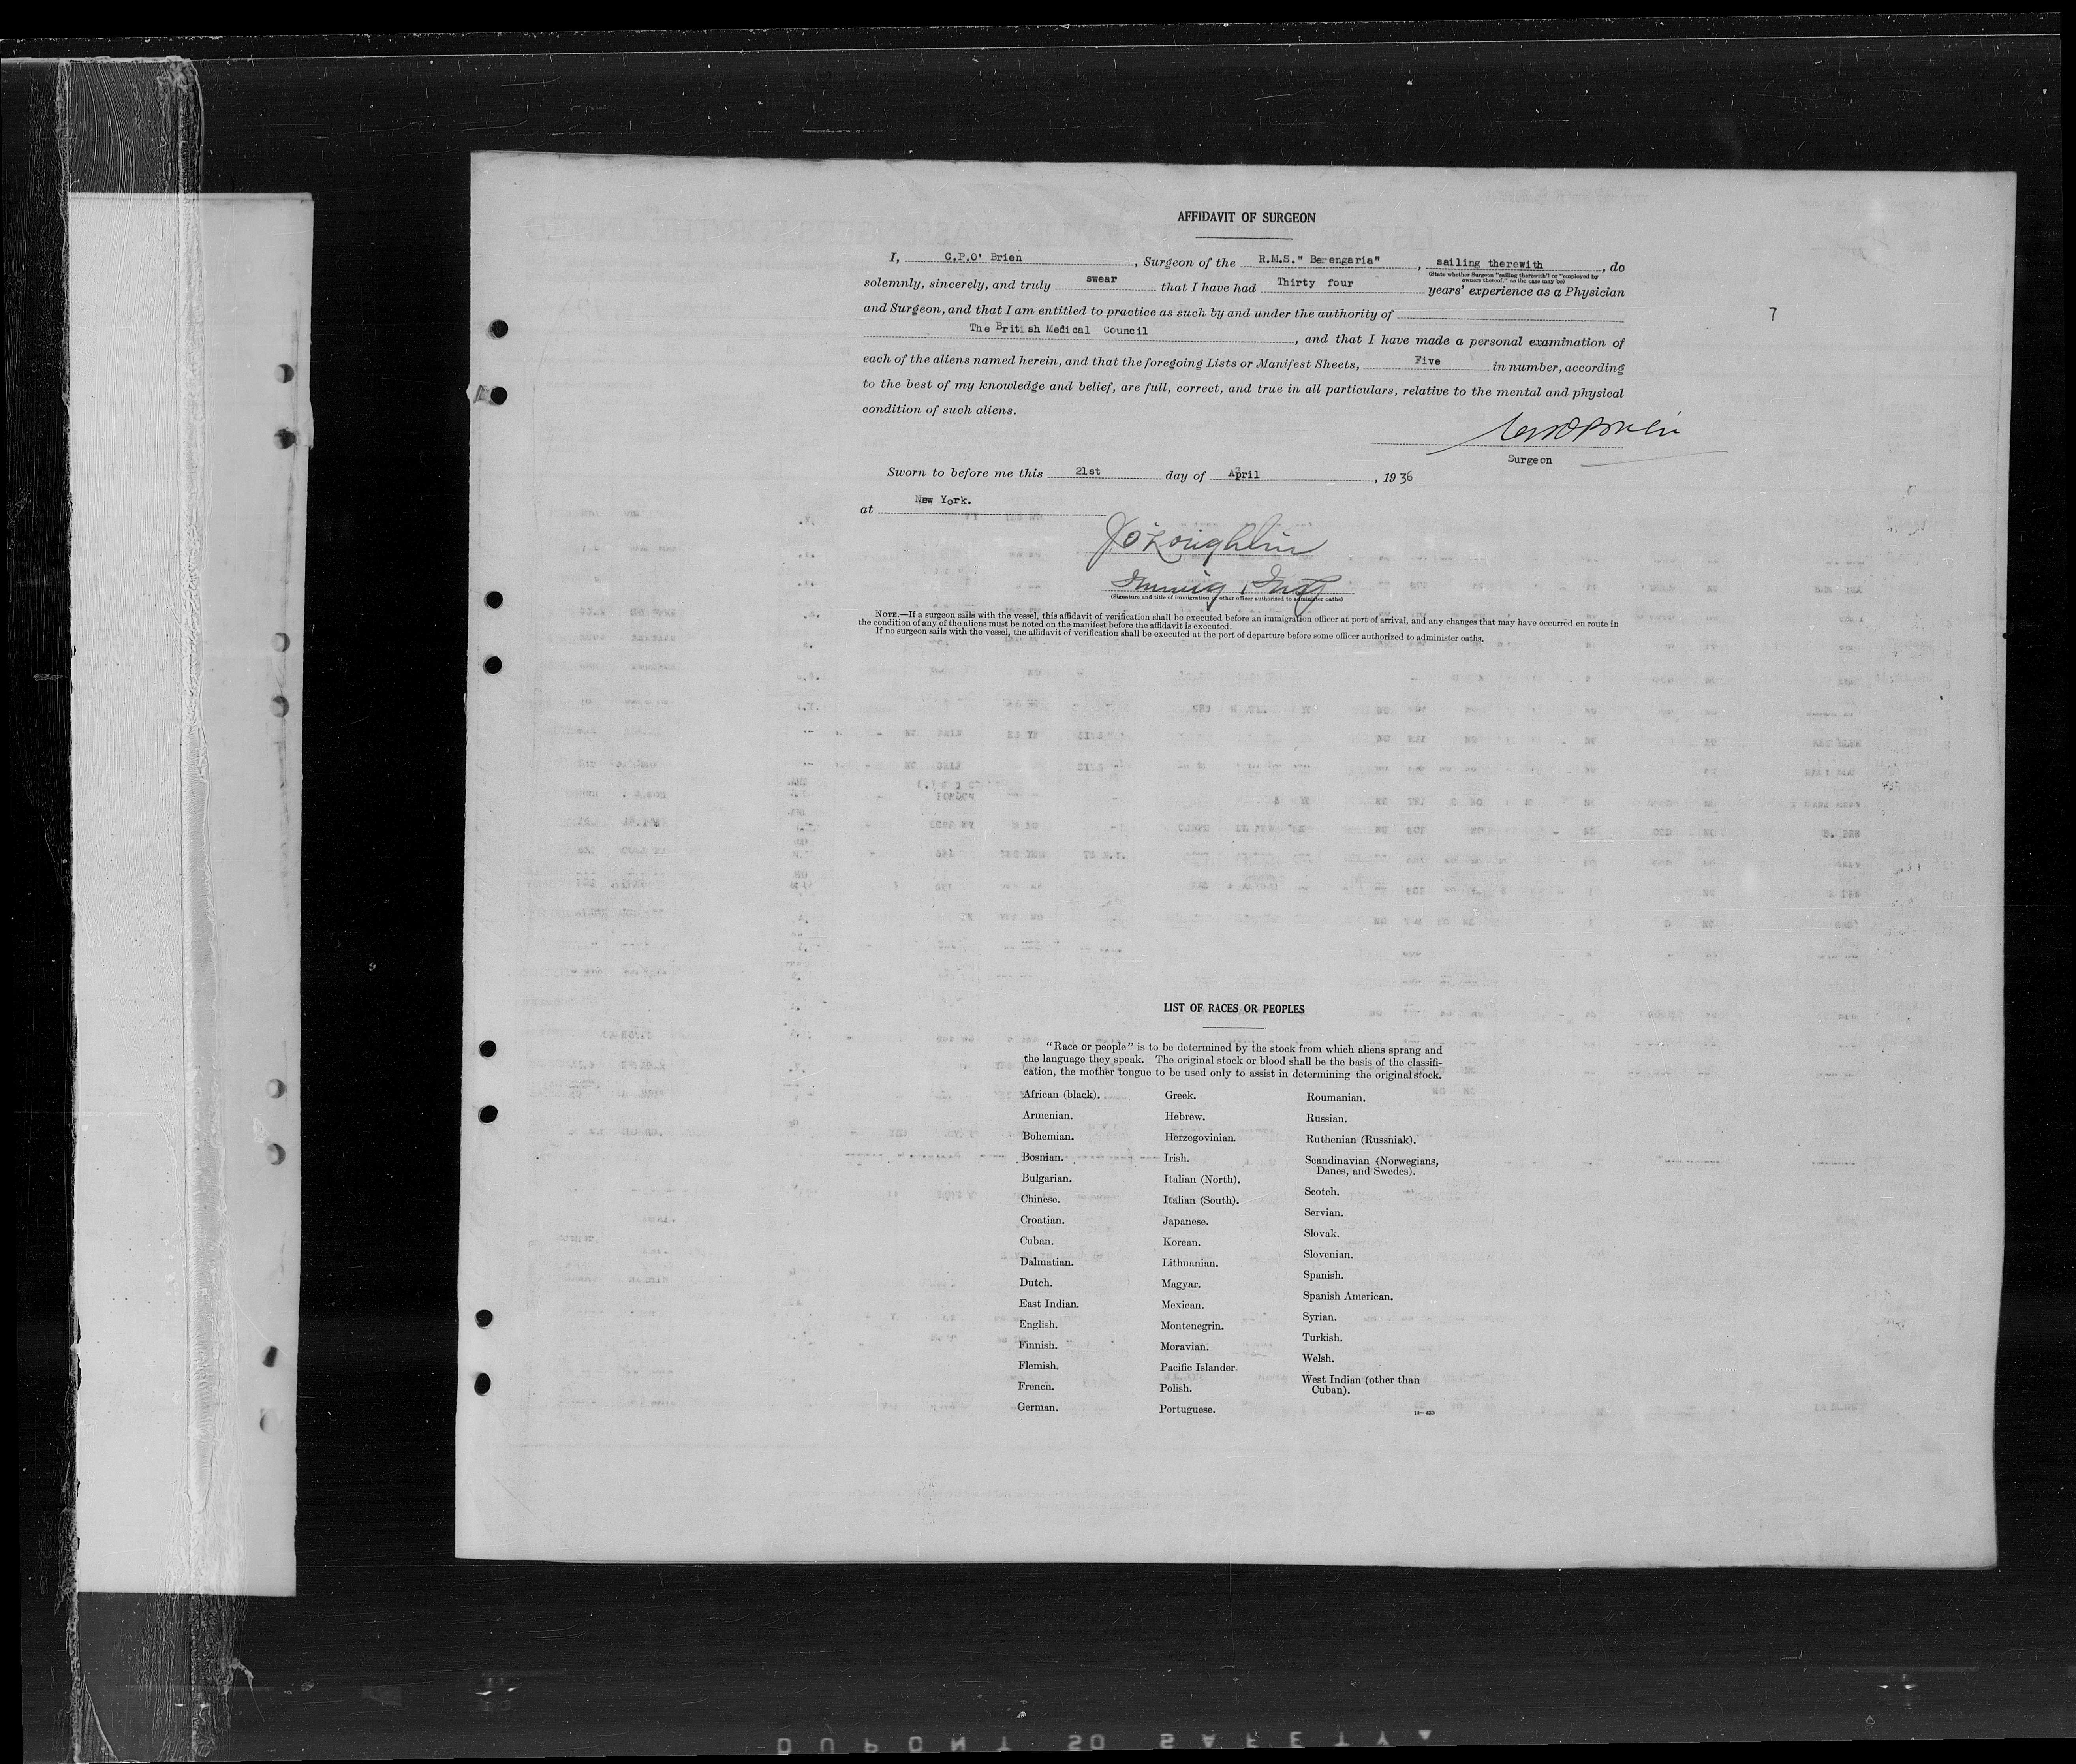 AFFIDAVIT OF SURGEON
I, C.P.O' Brien, Surgeon of the R.M.S." Berengaria", sailing therewith, do
(State whether Surgeon "sailing therewith" or "employed by
owners thereof," as the case may be)
solemnly, sincerely, and truly swear that I have had Thirty four years' experience as a Physician
and Surgeon, and that I am entitled to practice as such by and under the authority of
7
The British Medical Council, and that I have made a personal examination of
each of the aliens named herein, and that the foregoing Lists or Manifest Sheets, Five in number, according
to the best of my knowledge and belief, are full, correct, and true in all particulars, relative to the mental and physical
condition of such aliens.
Surgeon
Sworn to before me this 21st day of April, 1936
at New York.
J O'Loughlin
Immig Insp
(Signature and title of immigration or other officer authorized to administer oaths)
NOTE.—If a surgeon sails with the vessel, this affidavit of verification shall be executed before an immigration officer at port of arrival, and any changes that may have occurred en route in
the condition of any of the aliens must be noted on the manifest before the affidavit is executed.
If no surgeon sails with the vessel, the affidavit of verification shall be executed at the port of departure before some officer authorized to administer oaths.
LIST OF RACES OR PEOPLES
"Race or people" is to be determined by the stock from which aliens sprang and
the language they speak. The original stock or blood shall be the basis of the classifi-
cation, the mother tongue to be used only to assist in determining the original stock.
African (black).
Armenian.
Bohemian.
Bosnian.
Bulgarian.
Chinese.
Croatian.
Cuban.
Dalmatian.
Dutch.
East Indian.
English.
Finnish.
Flemish.
French.
German.
Greek.
Hebrew.
Herzegovinian.
Irish.
Italian (North).
Italian (South).
Japanese.
Korean.
Lithuanian.
Magyar.
Mexican.
Montenegrin.
Moravian.
Pacific Islander.
Polish.
Portuguese.
Roumanian.
Russian.
Ruthenian (Russniak).
Scandinavian (Norwegians,
Danes, and Swedes).
Scotch.
Servian.
Slovak.
Slovenian.
Spanish.
Spanish American.
Syrian.
Turkish.
Welsh.
West Indian (other than
Cuban).
DUPONT SO SAFETY